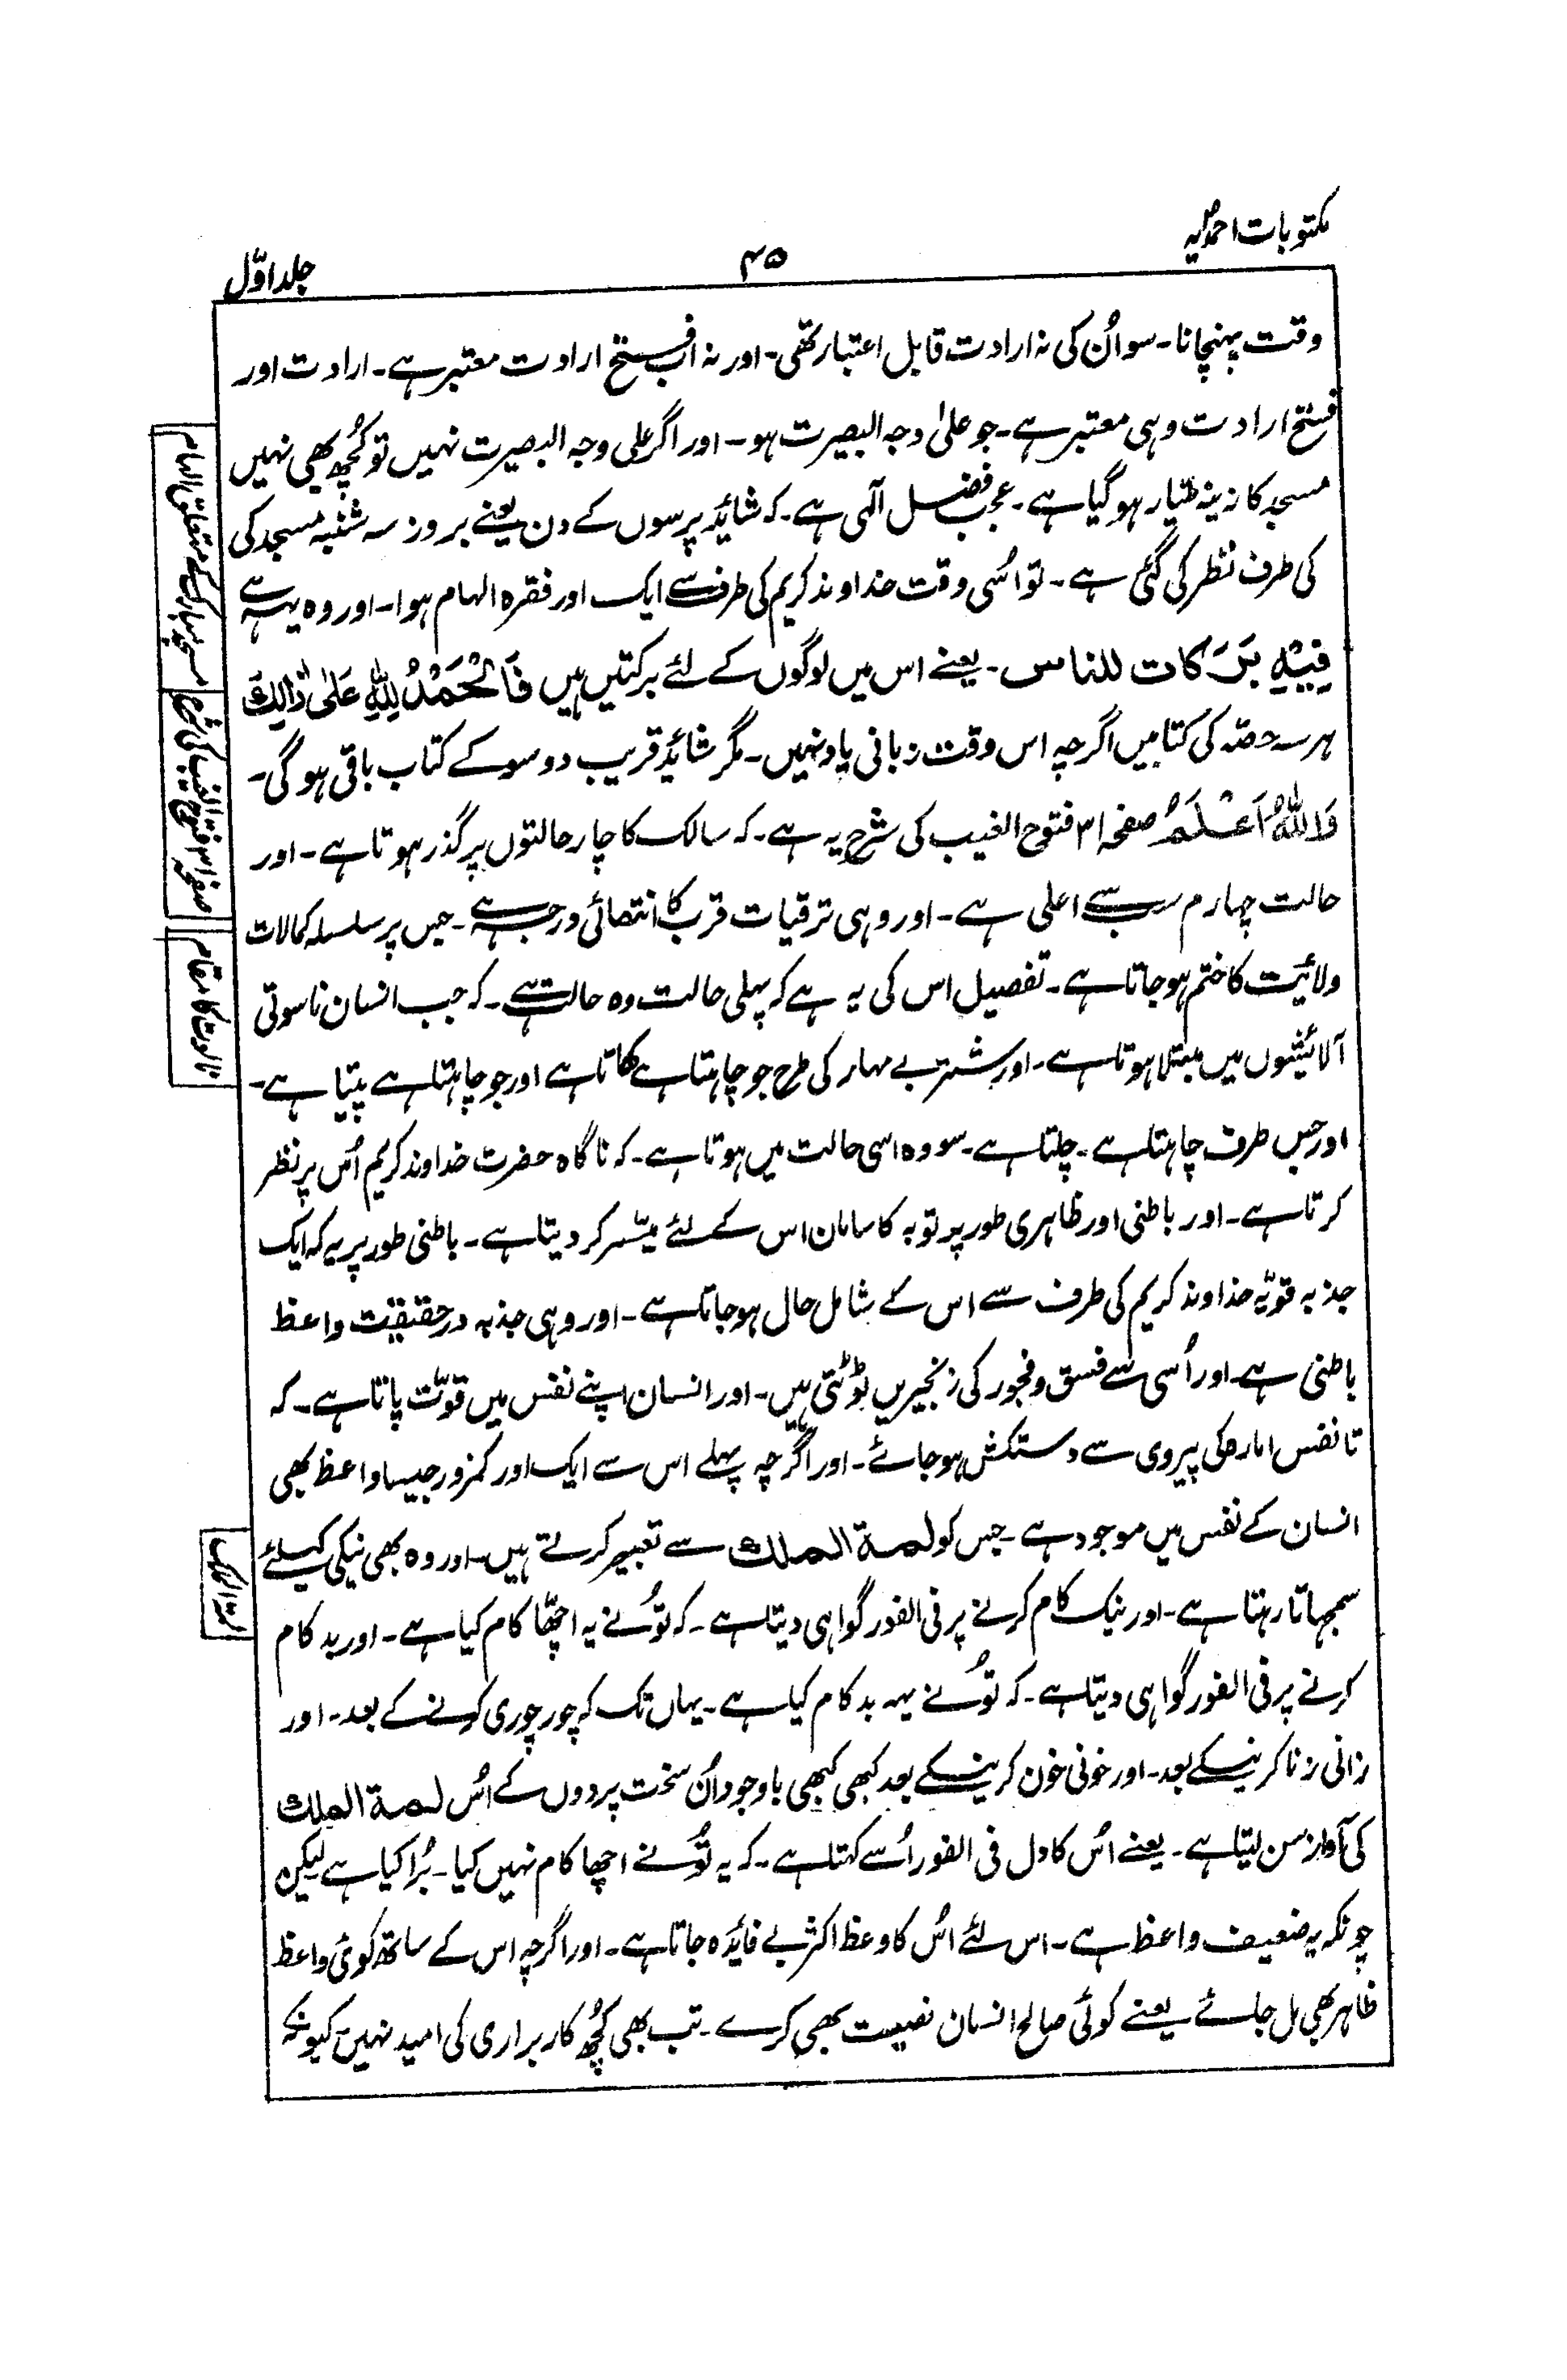 مکتوبات احمدیہ
۴۵
جلد اوّل
وقت پہنچانا۔ سو اُن کی نہ ارادت قابل اعتبار تھی۔ اور نہ اب فسخ ارادت معتبر ہے۔ ارادت اور
فسخ ارادت وہی معتبر ہے۔ جو علیٰ وجہ البصیرت ہو۔ اور اگر علی وجہ البصیرت نہیں تو کُچھ بھی نہیں
مسجد کا زینہ طیار ہو گیا ہے۔ عجب فضل الٰہی ہے۔ کہ شائد پرسوں کے دن یعنے بروز سہ شنبہ مسجد کی
کی طرف نظر کی گئی ہے۔ تو اُسی وقت خداوند کریم کی طرف سے ایک اور فقرہ الہام ہوا۔ اور وہ یہہ ہے
فِیْہِ بَرَکات للناس۔ یعنے اس میں لوگوں کے لئے برکتیں ہیں فَالْحَمْدُ لِلّٰہِ عَلیٰ ذٰالِکَ
ہر سہ حصّہ کی کتابیں اگرچہ اس وقت زبانی یاد نہیں۔ مگر شائد قریب دو سو کے کتاب باقی ہو گی۔
وَاللّٰہُ اَعْلَمُ صفحہ ۳۱ فتوح الغیب کی شرح یہ ہے۔ کہ سالک کا چار حالتوں پر گذر ہوتا ہے۔ اور
حالت چہارم سب سے اعلی ہے۔ اور وہی ترقیات قرب کا انتھائی درجہ ہے۔ جس پر سلسلہ کمالات
ولائیت کا ختم ہو جاتا ہے۔ تفصیل اس کی یہ ہے کہ پہلی حالت وہ حالت ہے۔ کہ جب انسان ناسوتی
آلائیشوں میں مبتلا ہوتا ہے۔ اور شتر بے مہار کی طرح جو چاہتا ہے کھاتا ہے اور جو چاہتا ہے پیتا ہے۔
اور جس طرف چاہتا ہے۔ چلتا ہے۔ سو وہ اسی حالت میں ہوتا ہے۔ کہ ناگاہ حضرت خداوند کریم اُس پر نظر
کرتا ہے۔ اور باطنی اور ظاہری طور پر توبہ کا سامان اس کے لئے میّسر کر دیتا ہے۔ باطنی طور پر یہ کہ ایک
جذبہ قویّہ خداوند کریم کی طرف سے اس کے شامل حال ہو جاتا ہے۔ اور وہی جذبہ درحقیقت واعظ
باطنی ہے۔ اور اُسی سے فسق و فجور کی زنجیریں ٹوٹتی ہیں۔ اور انسان اپنے نفس میں قوّت پاتا ہے۔ کہ
تا نفس امارہ کی پیروی سے دستکش ہو جائے۔ اور اگرچہ پہلے اس سے ایک اور کمزور جیسا واعظ بھی
انسان کے نفس میں موجود ہے۔ جس کو لمة الملك سے تعبیر کرتے ہیں۔ اور وہ بھی نیکی کیلئے
سمجہاتا رہتا ہے۔ اور نیک کام کرنے پر فی الفور گواہی دیتا ہے۔ کہ تُو نے یہ اچھّا کام کیا ہے۔ اور بد کام
کرنے پر فی الفور گواہی دیتا ہے۔ کہ تُو نے یہہ بد کام کیا ہے۔ یہاں تک کہ چور چوری کرنے کے بعد۔ اور
زانی زنا کرنیکے بعد۔ اور خونی خون کرنیکے بعد کبھی کبھی باوجود اُن سخت پردوں کے اُس لمة الملك
کی آواز سن لیتا ہے۔ یعنے اُس کا دل فی الفور اُسے کہتا ہے۔ کہ یہ تُو نے اچھا کام نہیں کیا۔ بُرا کیا ہے لیکن
چونکہ یہ ضعیف واعظ ہے۔ اس لئے اُس کا وعظ اکثر بے فائدہ جاتا ہے۔ اور اگرچہ اس کے ساتھ کوئی واعظ
ظاہر بھی مل جائے یعنے کوئی صالح انسان نصیحت بھی کرے۔ تب بھی کُچھ کاربراری کی امید نہیں کیونکہ
مسجد مبارک کے متعلق الہام
صفحہ ۳۱ فتوح الغیب کی شرح
ناسوت کا مقام
لمۃ الملک